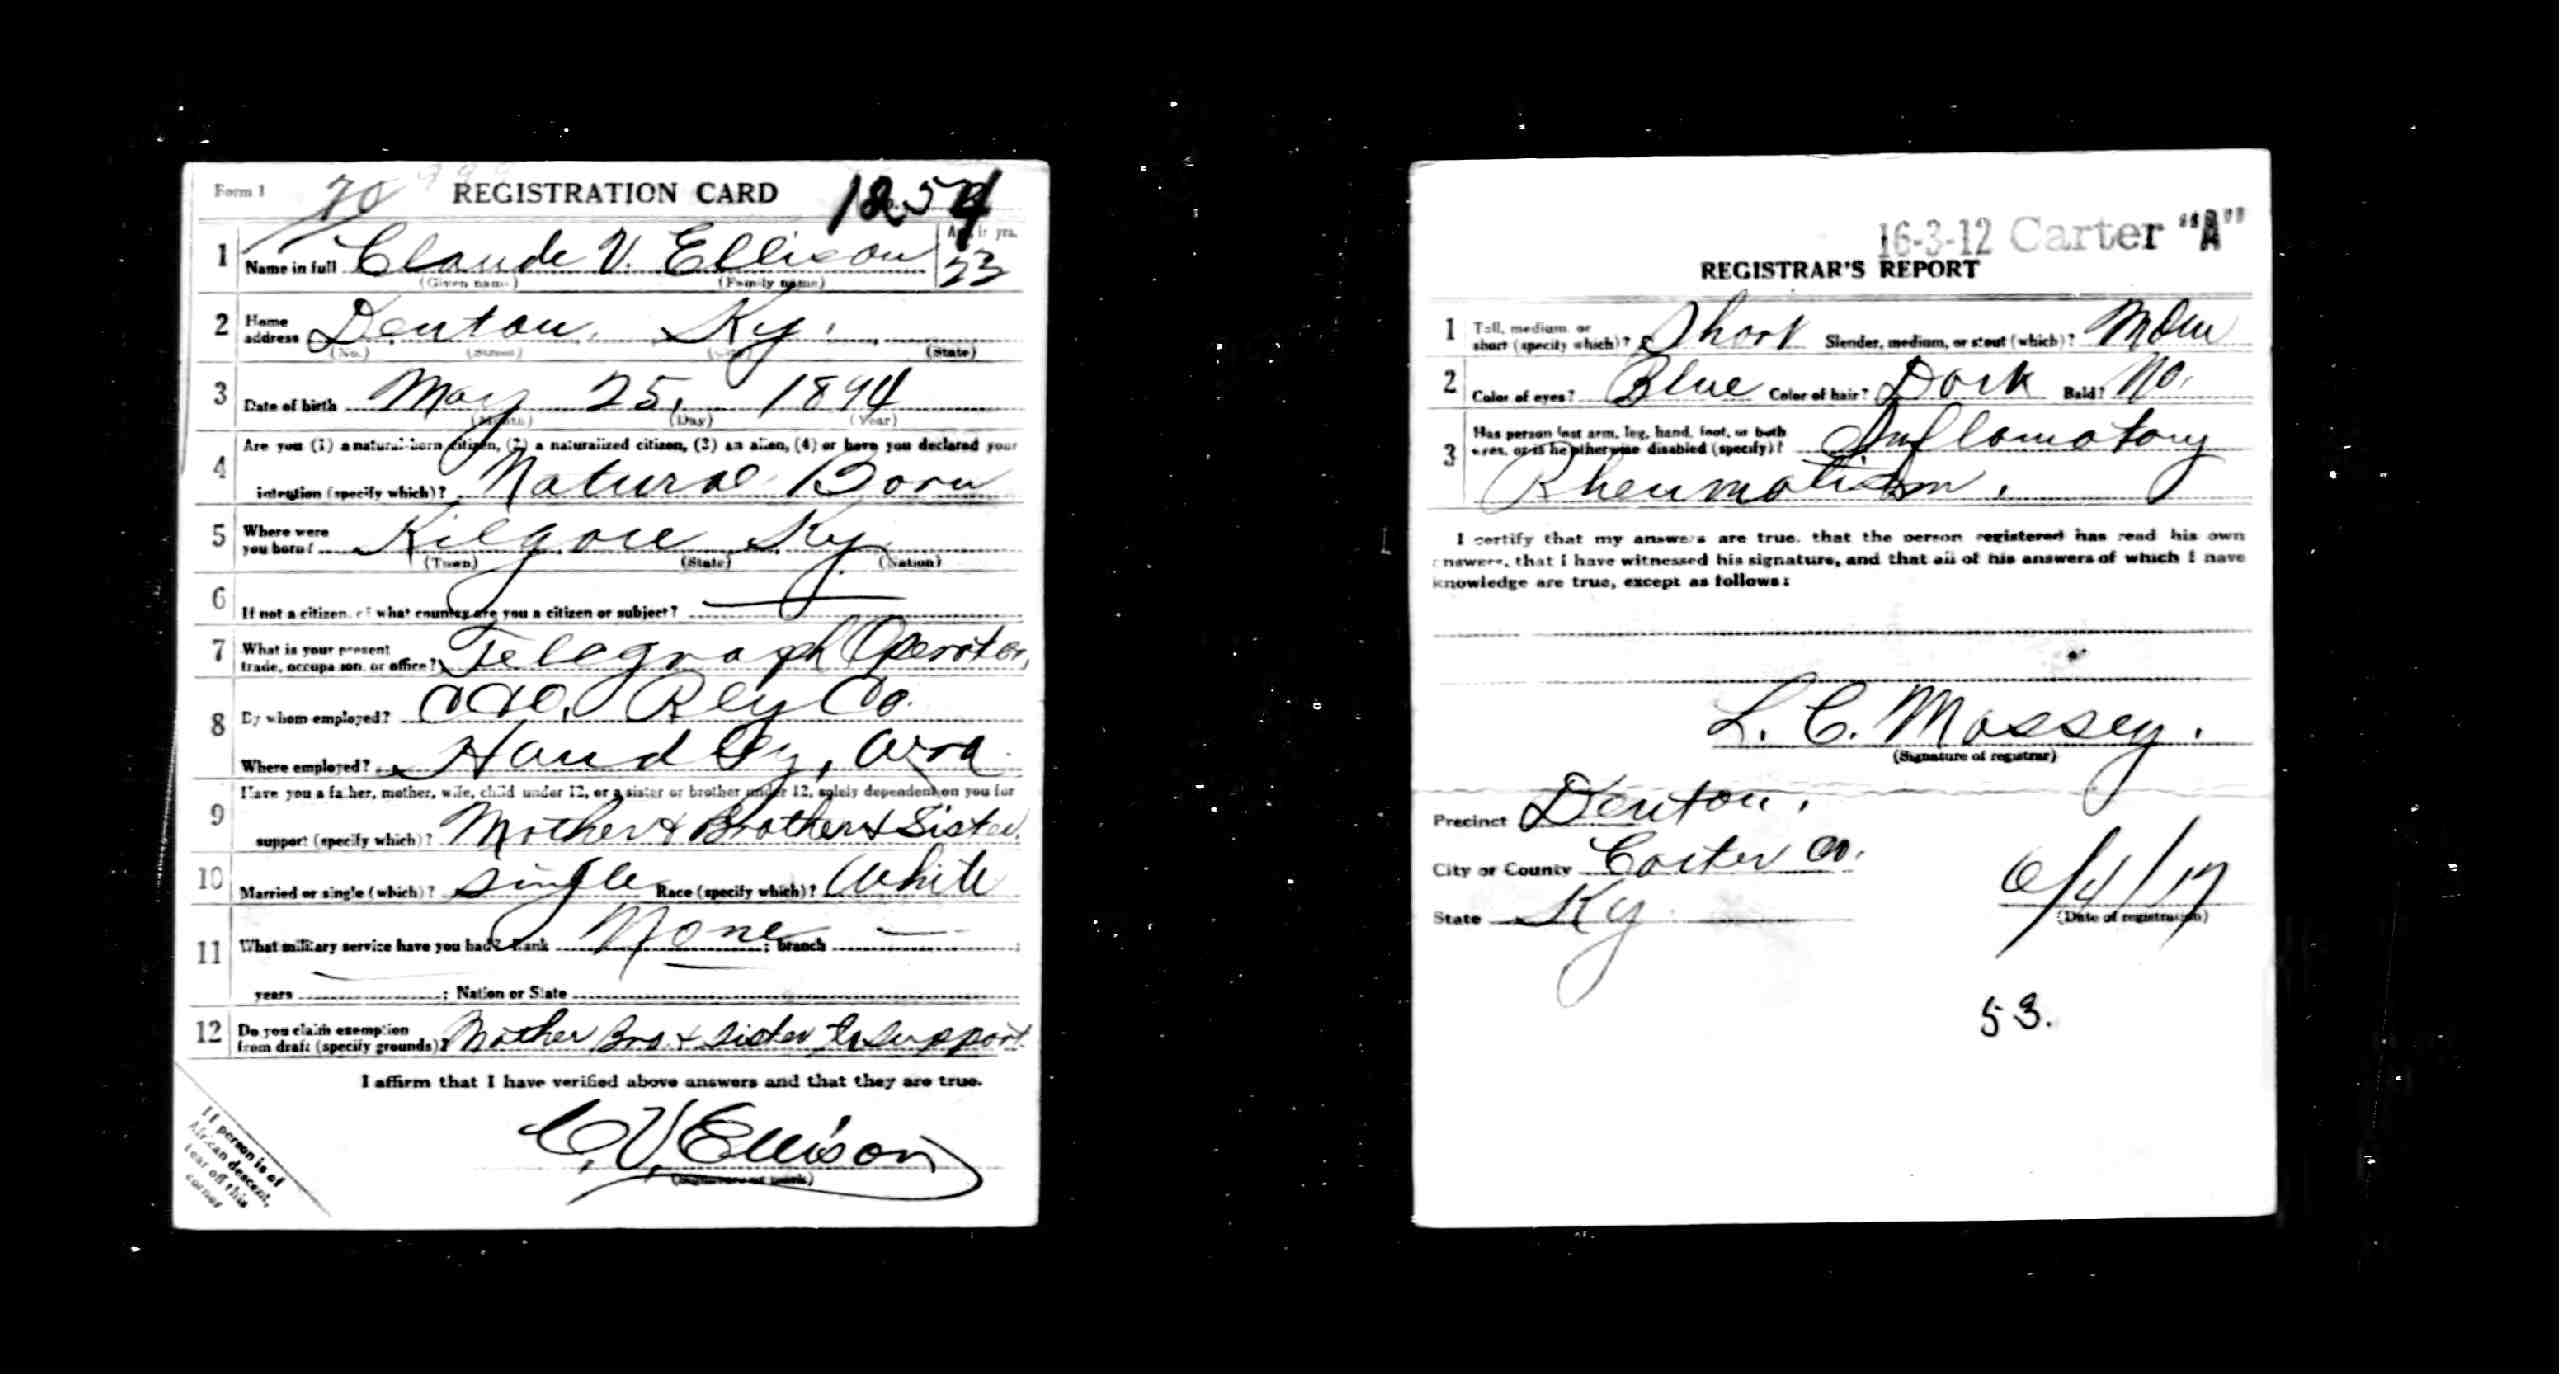 Form 1 70 REGISTRATION CARD 1254
1 Name in full Claude V. Ellison Age in yrs. 23
(Given name) (Family name)
2 Home address Denton, Ky.
(No.) (Street) (City) (State)
3 Date of birth May 25, 1894
(Month) (Day) (Year)
4 Are you (1) a natural-born citizen, (2) a naturalized citizen, (3) an alien, (4) or have you declared your
intention (specify which)? Natural Born
5 Where were you born? Kilgore Ky
(Town) (State) (Nation)
6 If not a citizen, of what country are you a citizen or subject?
7 What is your present trade, occupation, or office? Telegraph Operator,
8 By whom employed? C&O. Rly Co.
Where employed? Handley, W.va
9 Have you a father, mother, wife, child under 12, or a sister or brother under 12, solely dependent on you for
support (specify which)? Mother & Brother & Sister.
10 Married or single (which)? Single Race (specify which)? White
11 What military service have you had? Rank None ; branch — ;
years ; Nation or State
12 Do you claim exemption from draft (specify grounds)? Mother Bro & sister to support
I affirm that I have verified above answers and that they are true.
C. V. Ellison
(Signature or mark)
If person is of
African descent,
tear off this
corner
16-3-12 Carter "A"
REGISTRAR'S REPORT
1 Tall, medium, or short (specify which)? Short Slender, medium, or stout (which)? Mdm
2 Color of eyes? Blue Color of hair? Dark Bald? No.
3 Has person lost arm, leg, hand, foot, or both eyes, or is he otherwise disabled (specify)? Inflamatory
Rheumatism.
I certify that my answers are true, that the person registered has read his own
answers, that I have witnessed his signature, and that all of his answers of which I have
knowledge are true, except as follows:
L. C. Massey.
(Signature of registrar)
Precinct Denton.
City or County Carter Co.
State Ky
6/4/17
(Date of registration)
53.